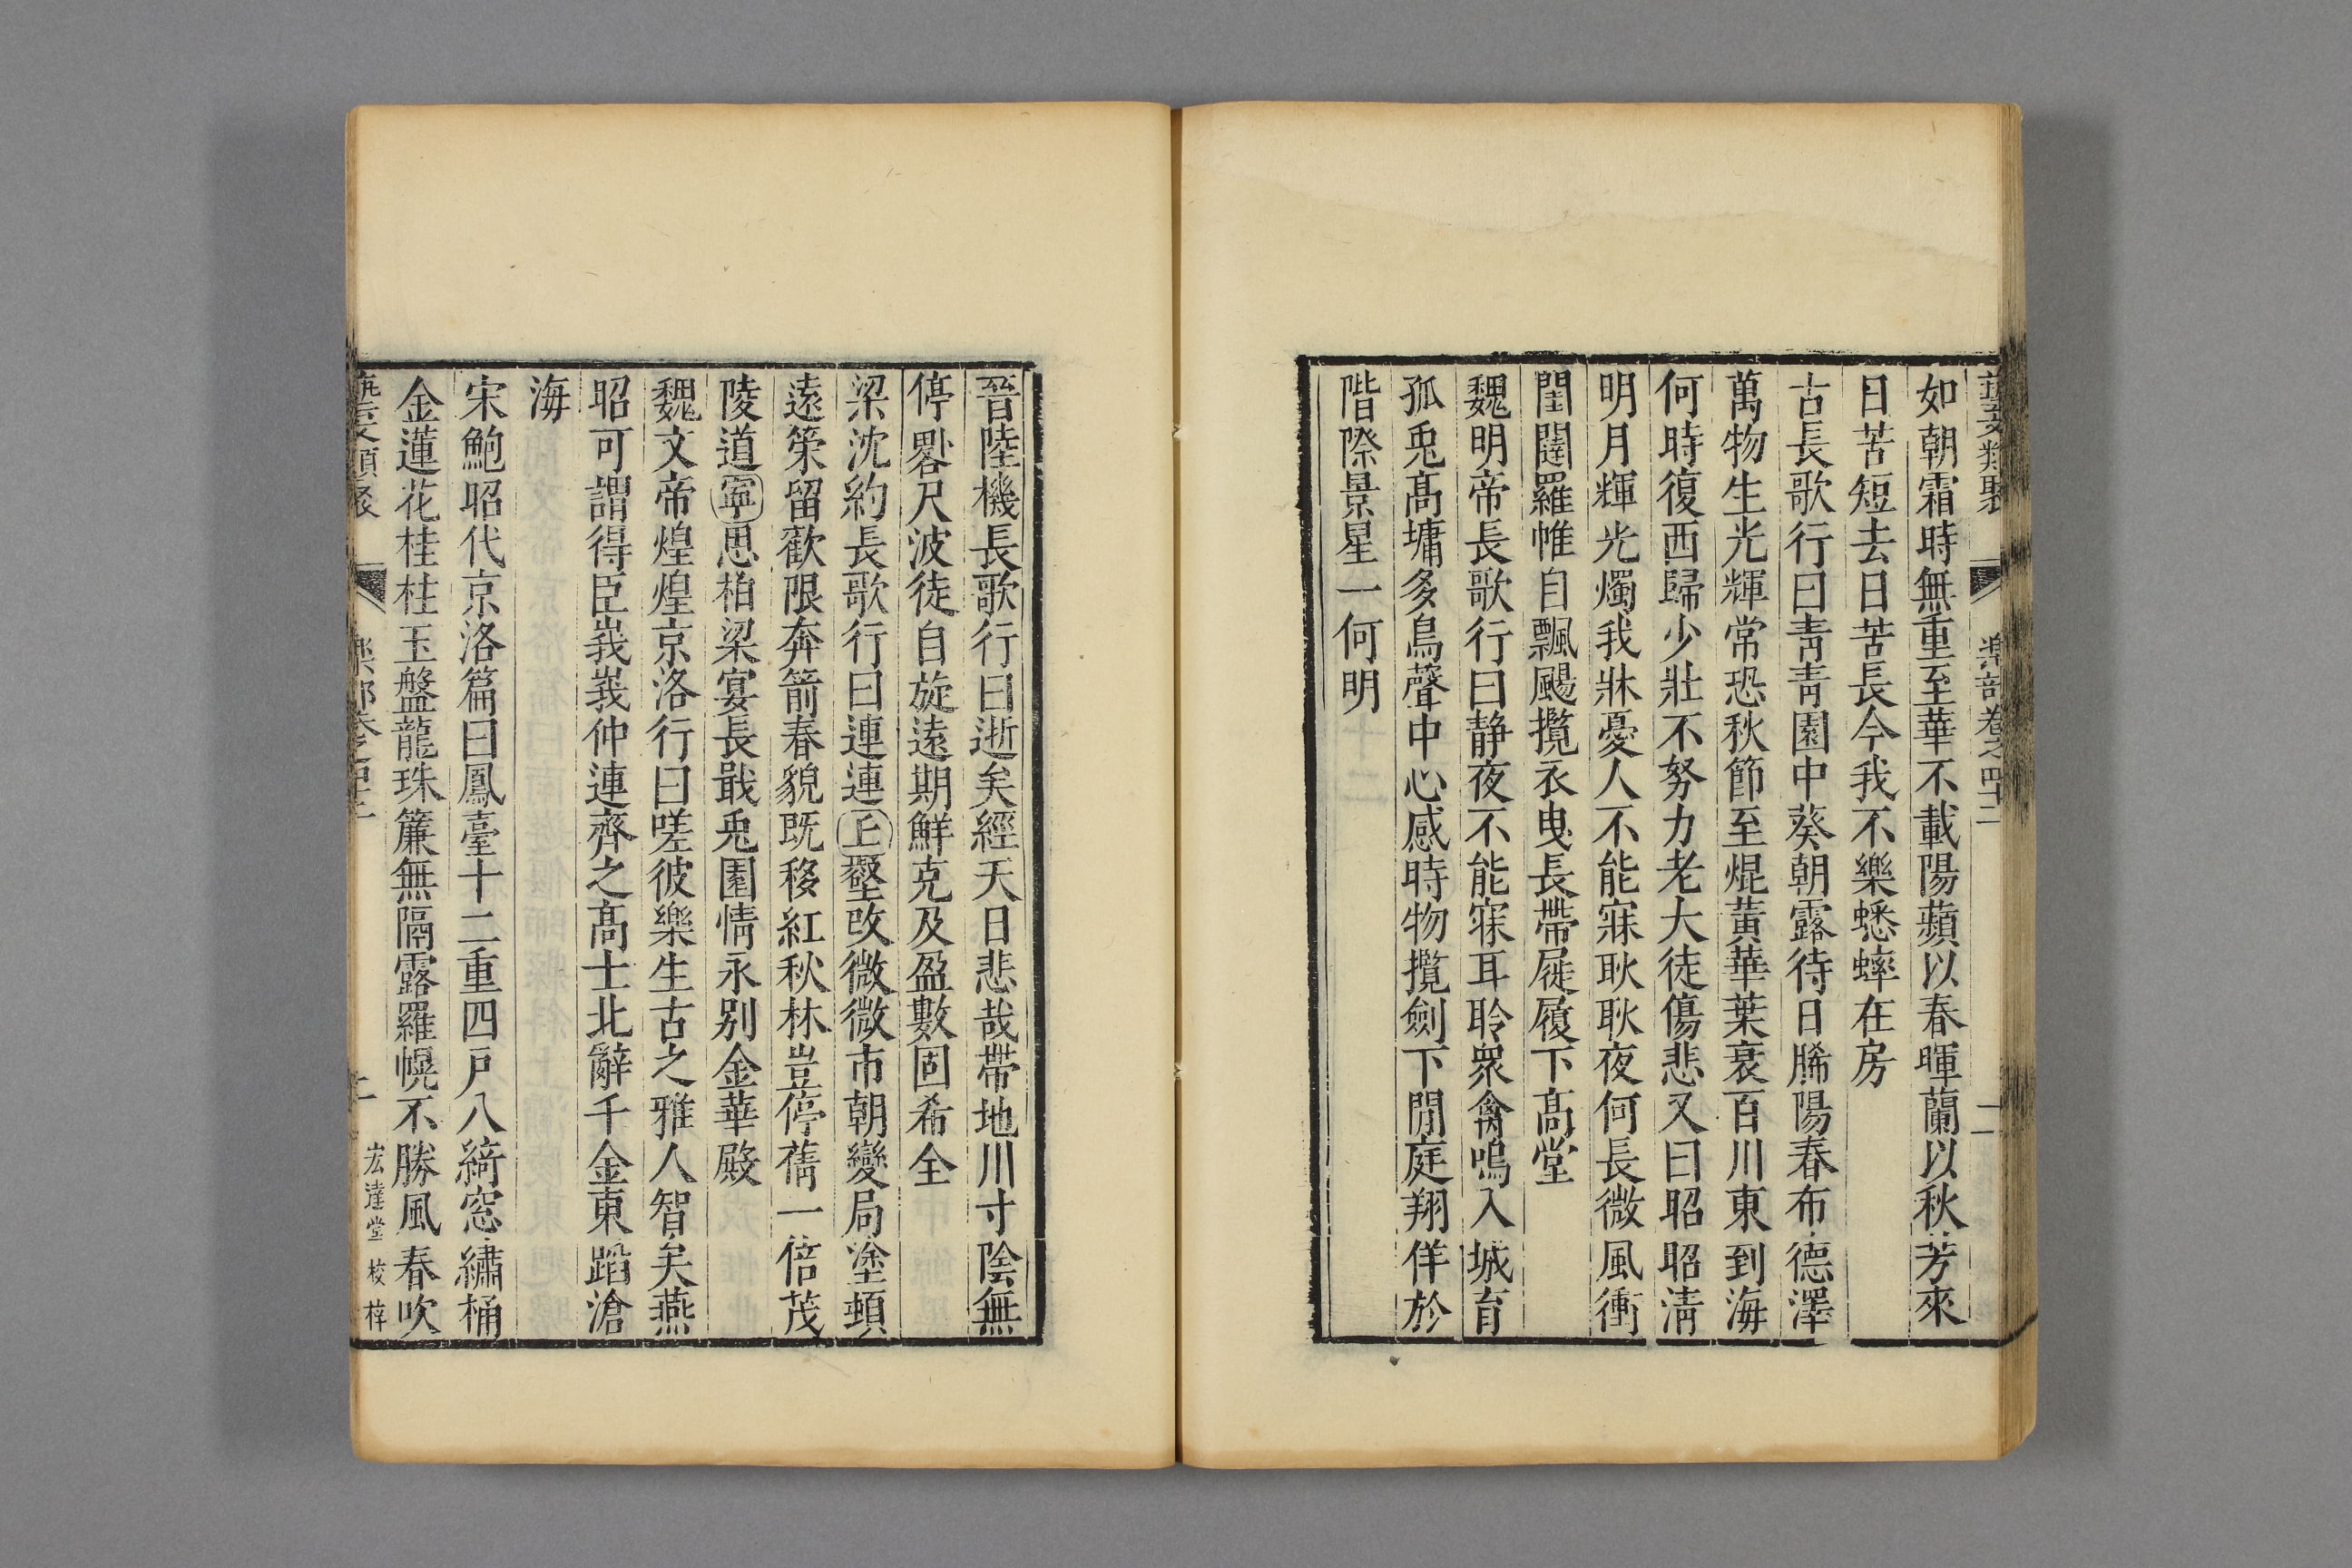 藝文類聚 樂部卷之四十二 二
如朝霜時無重至華不載陽蘋以春暉蘭以秋芳來
日苦短去日苦長今我不樂蟋蟀在房
古長歌行曰靑靑園中葵朝露待日晞陽春布德澤
萬物生光輝常恐秋節至焜黃華葉衰百川東到海
何時復西歸少壯不努力老大徒傷悲又曰昭昭淸
明月輝光燭我牀憂人不能寐耿耿夜何長微風衝
閨闥羅帷自飄颺攬衣曳長帶屣履下髙堂
魏明帝長歌行曰静夜不能寐耳聆衆禽鳴入城育
孤兎髙墉多鳥聲中心感時物攬劍下閒庭翔佯於
階際景星一何明
晉陸機長歌行曰逝矣經天日悲哉帶地川寸陰無
停晷尺波徒自旋遠期鮮克及盈數固希全
梁沈約長歌行曰連連上壑改微微市朝變局塗頓
遠策留歡限奔箭春貌既移紅秋林豈停蒨一倍茂
陵道寧思柏梁宴長戢兎園情永别金華殿
魏文帝煌煌京洛行曰嗟彼樂生古之雅人智矣燕
昭可謂得臣峩峩仲連齊之髙士北辭千金東蹈滄
海
宋鮑昭代京洛篇曰鳳臺十二重四戸八綺窓繡桷
金蓮花桂柱玉盤龍珠簾無隔露羅幌不勝風春吹
藝文類聚 樂部卷之四十二 二 宏達堂校梓